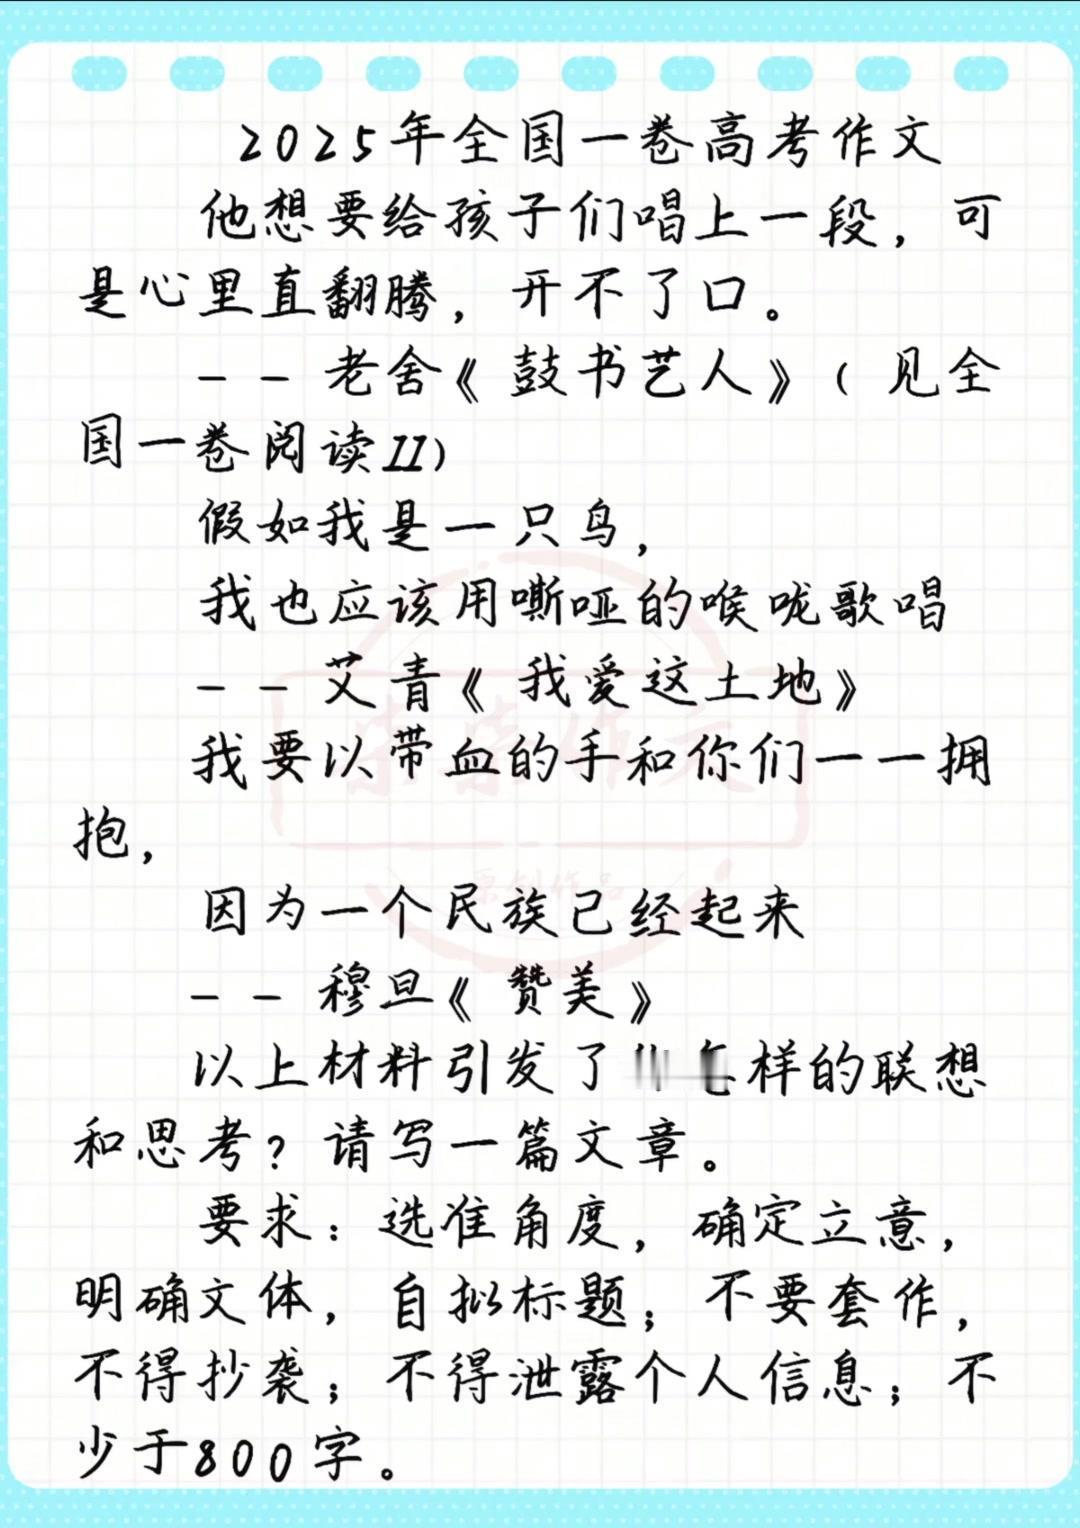 2025年全国一卷高考作文
他想要给孩子们唱上一段，可
是心里直翻腾，开不了口。
--老舍《鼓书艺人》(见全
国一卷阅读II)
假如我是一只鸟，
我也应该用嘶哑的喉咙歌唱
--艾青《我爱这土地》
我要以带血的手和你们一一拥
抱，
因为一个民族已经起来
--穆旦《赞美》
以上材料引发了怎样的联想
和思考？请写一篇文章。
要求：选准角度，确定立意，
明确文体，自拟标题；不要套作，
不得抄袭；不得泄露个人信息；不
少于800字。
原创作品